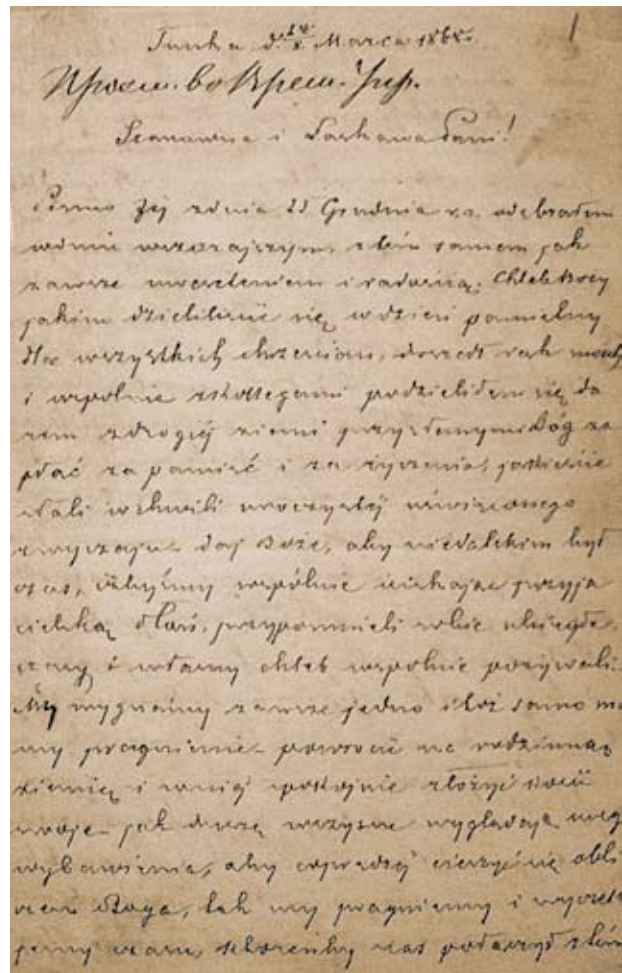 1
Tunka d. Marca 1868.
Szanowna i Łaskawa Pani!
Pismo Jej z dnia 25 Grudnia r.z. odebrałem
w dniu wczorajszym, z tém samem jak
zawsze uweseleniem i radością. Chleb Boży
jakim dzieliliście się w dzień pamiętny
dla wszystkich chrześcian, doszedł rąk moich
i wspólnie z kollegami podzieliłem się da
rem z drogiéj ziemi przysłanym. Bóg za
płać za pamięć i za życzenia, jakieście
słali w chwili uroczystéj uświęconego
zwyczaju. Daj Boże, aby niedalekim był
czas, iżbyśmy wspólnie ściskając przyja
cielską dłoń, przypomnieli sobie ubiegłe
czasy i własny chleb wspólnie pożywali.
My wygnańcy zawsze jedno i toż samo ma
my pragnienie - powrócić na rodzinną
ziemię i w niéj spokojnie złożyć kości
swoje - jak dusze czyscowe wyglądają
wybawienia, aby coprędzéj cieszyć się obli
czem Boga, tak my pragniemy i
czasu, którenby nas